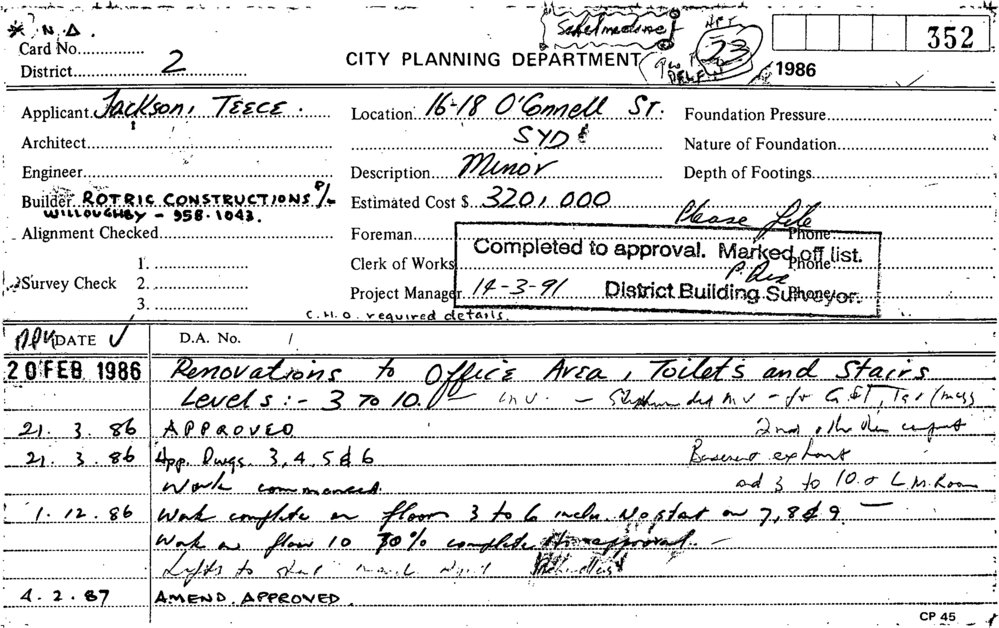 * N.A.
Card No.
District 2
CITY PLANNING DEPARTMENT
1986
352
Applicant Jackson, TEECE.
Architect
Engineer
Builder ROTRIC CONSTRUCTIONS P/L
WILLOUGHBY - 958-1043.
Alignment Checked
Survey Check 1.
2.
3.
Location 16-18 O'Connell St.
SYD
Description Minor
Estimated Cost $ 320,000
Foreman
Clerk of Works
Project Manager
C.H.O. required details.
Foundation Pressure
Nature of Foundation
Depth of Footings
Please file
Phone
Phone
Phone
Completed to approval. Marked off list.
14-3-91 District Building Surveyor.
DATE D.A. No.
20 FEB 1986 Renovations to Office Area, Toilets and Stairs
Levels :- 3 TO 10.
21. 3. 86 APPROVED
21. 3. 86 App. Dwgs. 3, 4, 5 & 6
Basement exhaust
Work commenced.
ad 3 to 10 L.M. Room
1. 12. 86 Work complete on floors 3 to 6 inclu. No start on 7, 8 & 9.
Work on floor 10 70% complete
Lifts to
4. 2. 87 AMEND. APPROVED.
CP 45